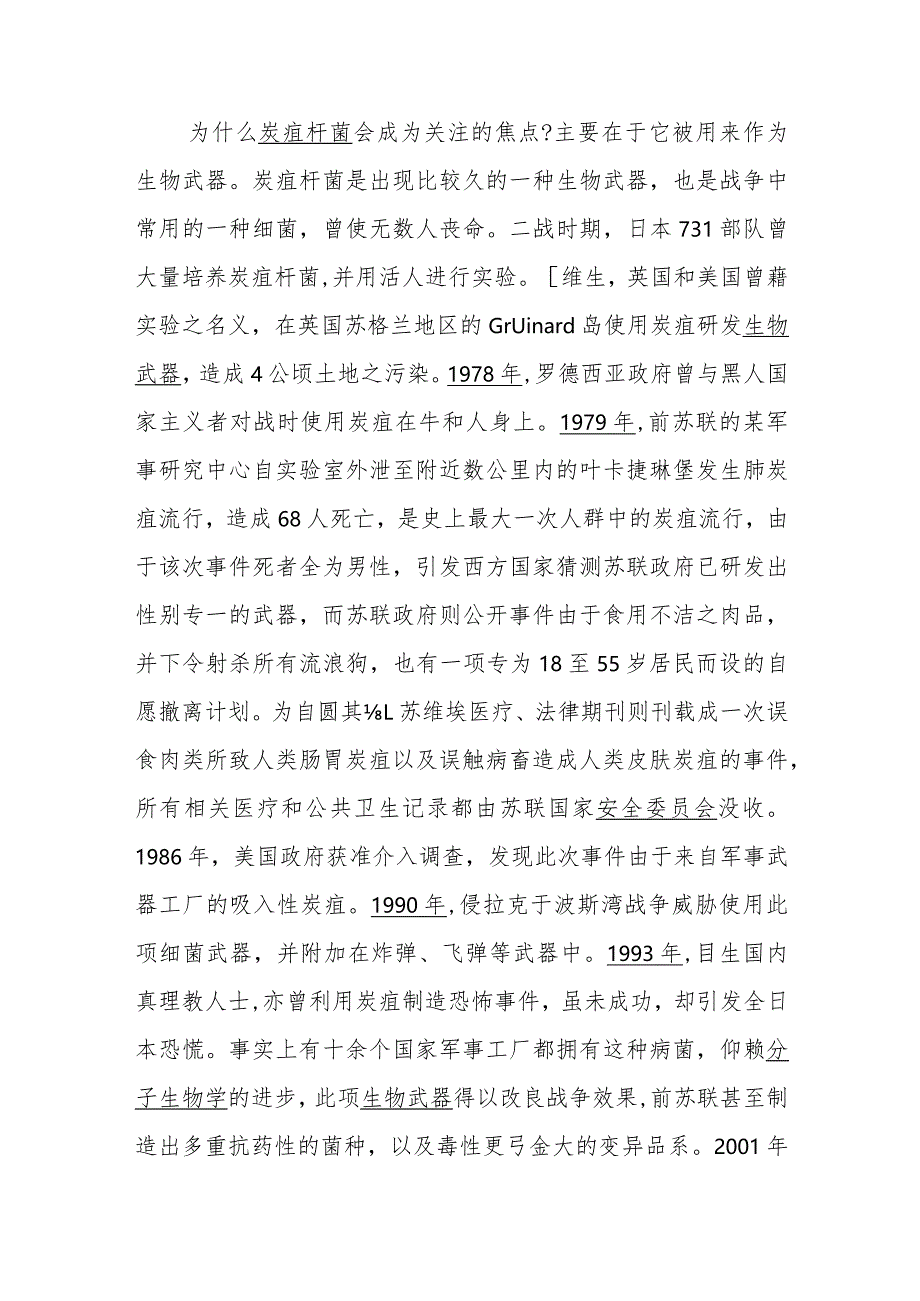 为什么炭疽杆菌会成为关注的焦点?主要在于它被用来作为
生物武器。炭疽杆菌是出现比较久的一种生物武器，也是战争中
常用的一种细菌，曾使无数人丧命。二战时期，日本 731 部队曾
大量培养炭疽杆菌,并用活人进行实验。［维生，英国和美国曾藉
实验之名义，在英国苏格兰地区的 GrUinard 岛使用炭疽研发生物
武器，造成 4 公顷土地之污染。1978 年,罗德西亚政府曾与黑人国
家主义者对战时使用炭疽在牛和人身上。1979 年,前苏联的某军
事研究中心自实验室外泄至附近数公里内的叶卡捷琳堡发生肺炭
疽流行，造成 68 人死亡，是史上最大一次人群中的炭疽流行，由
于该次事件死者全为男性，引发西方国家猜测苏联政府已研发出
性别专一的武器，而苏联政府则公开事件由于食用不洁之肉品，
并下令射杀所有流浪狗，也有一项专为 18 至 55 岁居民而设的自
愿撤离计划。为自圆其⅛L 苏维埃医疗、法律期刊则刊载成一次误
食肉类所致人类肠胃炭疽以及误触病畜造成人类皮肤炭疽的事件，
所有相关医疗和公共卫生记录都由苏联国家安全委员会没收。
1986 年，美国政府获准介入调查，发现此次事件由于来自军事武
器工厂的吸入性炭疽。1990 年,侵拉克于波斯湾战争威胁使用此
项细菌武器，并附加在炸弹、飞弹等武器中。1993 年,目生国内
真理教人士,亦曾利用炭疽制造恐怖事件，虽未成功，却引发全日
本恐慌。事实上有十余个国家军事工厂都拥有这种病菌，仰赖分
子生物学的进步，此项生物武器得以改良战争效果,前苏联甚至制
造出多重抗药性的菌种，以及毒性更弓金大的变异品系。2001 年